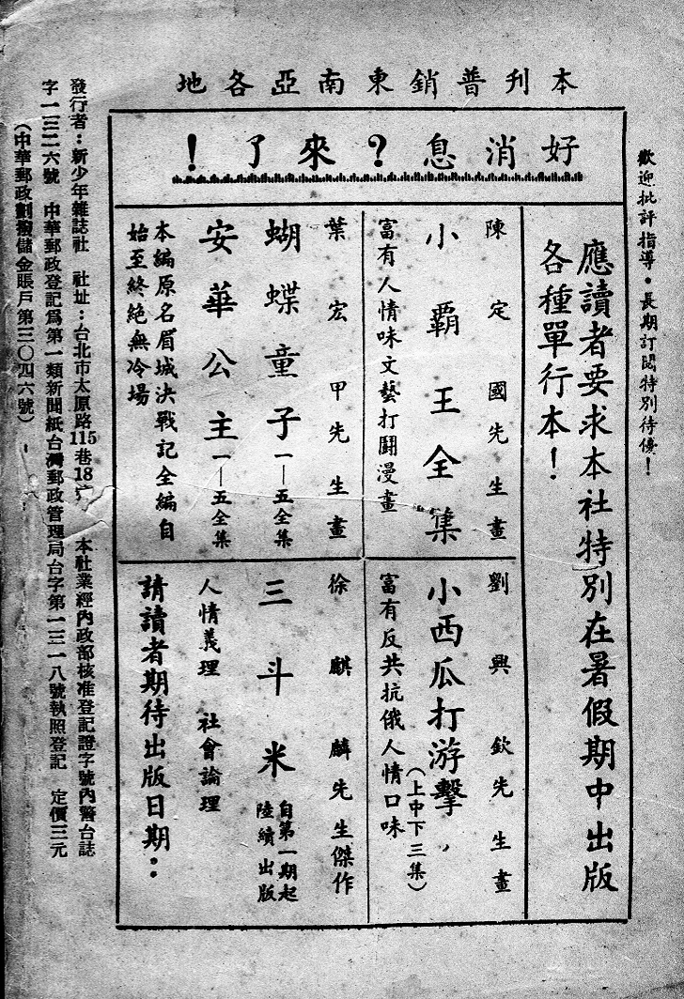 本刊普銷東南亞各地
歡迎批評指導・長期訂閱特別待優！
好消息？來了！
應讀者要求本社特別在暑假期中出版
各種單行本！
陳定國先生畫
小霸王全集
富有人情味文藝打鬪漫畫
葉宏甲先生畫
蝴蝶童子一—五全集
安華公主一—五全集
本編原名眉城決戰記全編自
始至終絕無冷場
劉興欽先生畫
小西瓜打游擊，
（上中下三集）
富有反共抗俄人情口味
徐麒麟先生傑作
三斗米
自第一期起
陸續出版
人情義理 社會論理
請讀者期待出版日期：
發行者：新少年雜誌社 社址：台北市太原路115巷18 本社業經內政部核准登記證字號內警台誌
字一三二六號 中華郵政登記爲第一類新聞紙台灣郵政管理局台字第一三一八號執照登記 定價三元
（中華郵政劃撥儲金賬戶第三〇四六號）